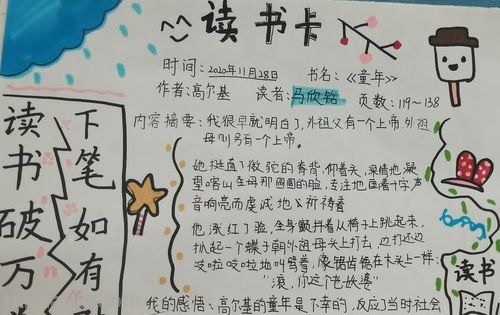 读书卡
时间：2020年11月28日 书名：《童年》
作者：高尔基 读者：马欣铭 页数：119~138
内容摘要：我很早就明白了，外祖父有一个上帝.外祖
母则另有一个上帝。
她挺直了微驼的脊背，仰着头，深情地凝
望喀山圣母那圆圆的脸，专注地画着十字声
音响亮而虔诚地祈祷着
他涨红了脸，全身颤抖着从椅子上跳起来，
抓起一个碟子朝外祖母头上打去，边打还边
哎啦哎啦地叫骂着，像锯齿锯在木头上一样：
"滚，你这个老妖婆"
我的感悟：高尔基的童年是不幸的，反应了当时社会
读书破万
下笔如有
读书